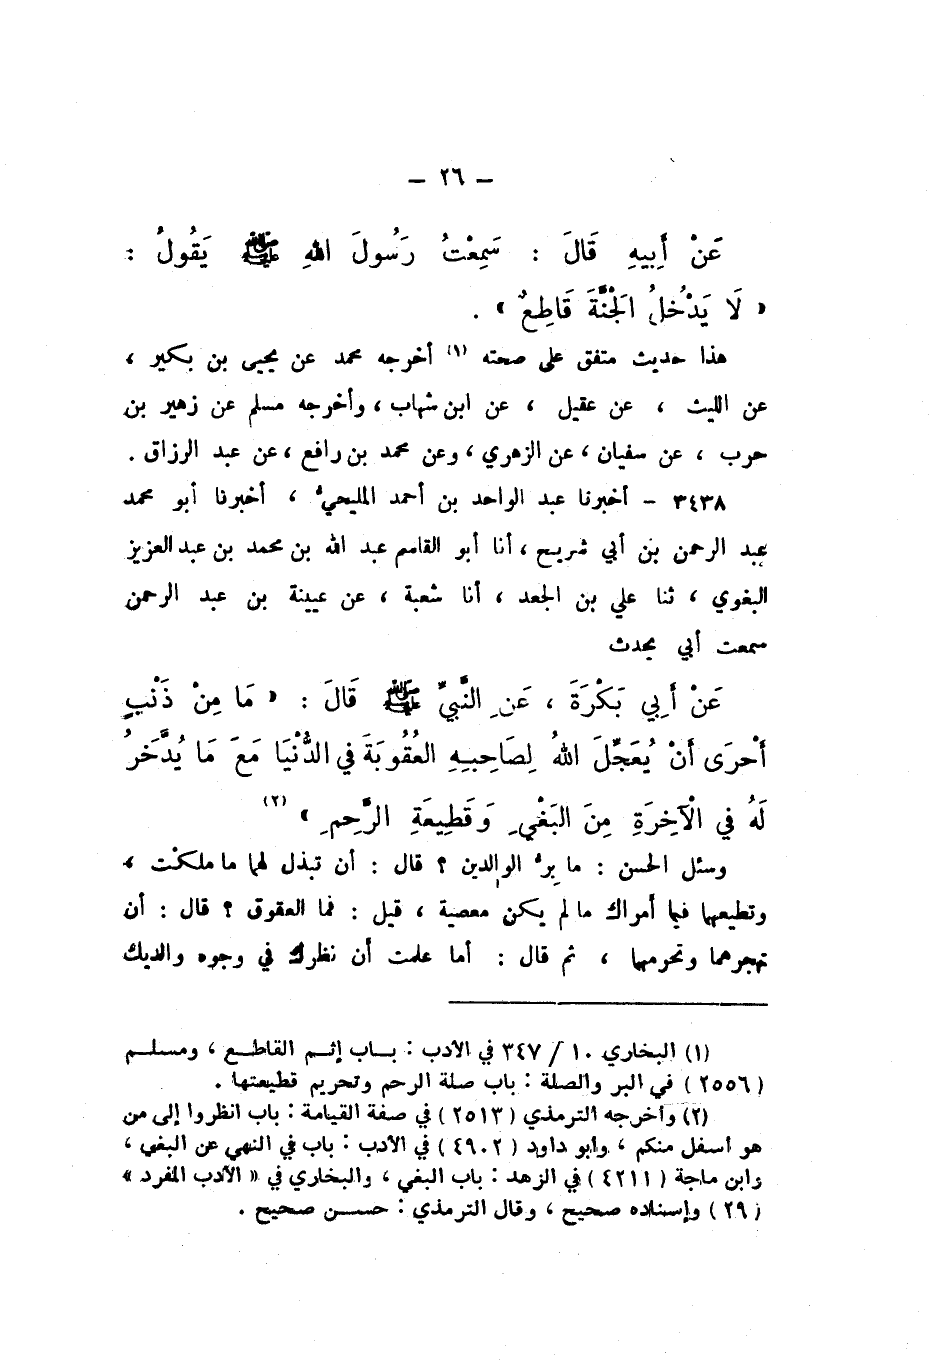 – ٢٦ –
عَنْ أَبِيهِ قَالَ : سَمِعْتُ رَسُولَ اللهِ ﷺ يَقُولُ :
« لَا يَدْخُلُ الْجَنَّةَ قَاطِعٌ » .
هذا حديث متفق على صحته (١) أخرجه محمد عن يحيى بن بكير ،
عن الليث ، عن عقيل ، عن ابن شهاب ، وأخرجه مسلم عن زهير بن
حرب ، عن سفيان ، عن الزهري ، وعن محمد بن رافع ، عن عبد الرزاق .
٣٤٣٨ – أخبرنا عبد الواحد بن أحمد المليحي ، أخبرنا أبو محمد
عبد الرحمن بن أبي شريح ، أنا أبو القاسم عبد الله بن محمد بن عبد العزيز
البغوي ، ثنا علي بن الجعد ، أنا شعبة ، عن عيينة بن عبد الرحمن
سمعت أبي يحدث
عَنْ أَبِي بَكْرَةَ ، عَنِ النَّبِيِّ ﷺ قَالَ : « مَا مِنْ ذَنْبٍ
أَحْرَى أَنْ يُعَجِّلَ اللهُ لِصَاحِبِهِ الْعُقُوبَةَ فِي الدُّنْيَا مَعَ مَا يُدَّخَرُ
لَهُ فِي الْآخِرَةِ مِنَ الْبَغْيِ وَقَطِيعَةِ الرَّحِمِ » (٢)
وسئل الحسن : ما برُّ الوالدين ؟ قال : أن تبذل لهما ما ملكت ،
وتطيعهما فيما أمراك ما لم يكن معصية ، قيل : فما العقوق ؟ قال : أن
تهجرهما وتحرمهما ، ثم قال : أما علمت أن نظرك في وجوه والديك
(١) البخاري ١٠ / ٣٤٧ في الأدب : بـاب إثـم القاطـع ، ومسلـم
(٢٥٥٦) في البر والصلة : باب صلة الرحم وتحريم قطيعتها .
(٢) وأخرجه الترمذي (٢٥١٣) في صفة القيامة : باب انظروا إلى من
هو أسفل منكم ، وأبو داود (٤٩٠٢) في الأدب : باب في النهي عن البغي ،
وابن ماجة (٤٢١١) في الزهد : باب البغي ، والبخاري في « الأدب المفرد »
(٢٩) وإسناده صحيح ، وقال الترمذي : حسـن صحيح .